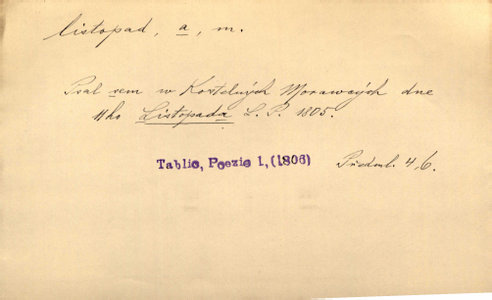 listopad, a, m.
Psal sem w Kostelných Morawcých dne
11ho Listopada L. P. 1805.
Tablic, Poezie 1,(1806) Předml. 4,6.